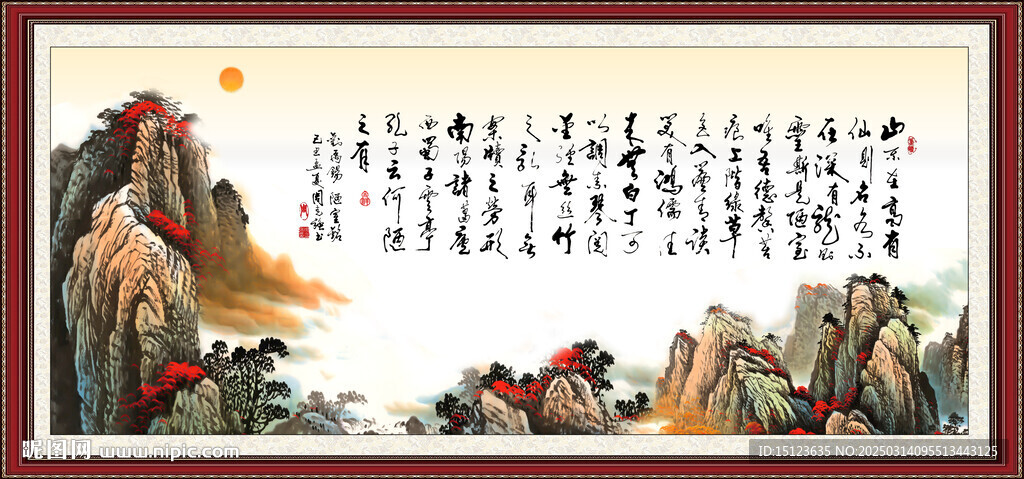 山不在高有
仙則名水不
在深有龍則
靈斯是陋室
唯吾德馨苔
痕上階綠草
色入簾青談
笑有鴻儒往
来無白丁可
以調素琴閱
金經無絲竹
之亂耳無
案牘之勞形
南陽諸葛廬
西蜀子雲亭
孔子云何陋
之有
劉禹錫 陋室銘
己丑孟夏周書
昵图网 www.nipic.com
ID:15123635 NO:20250314095513443125